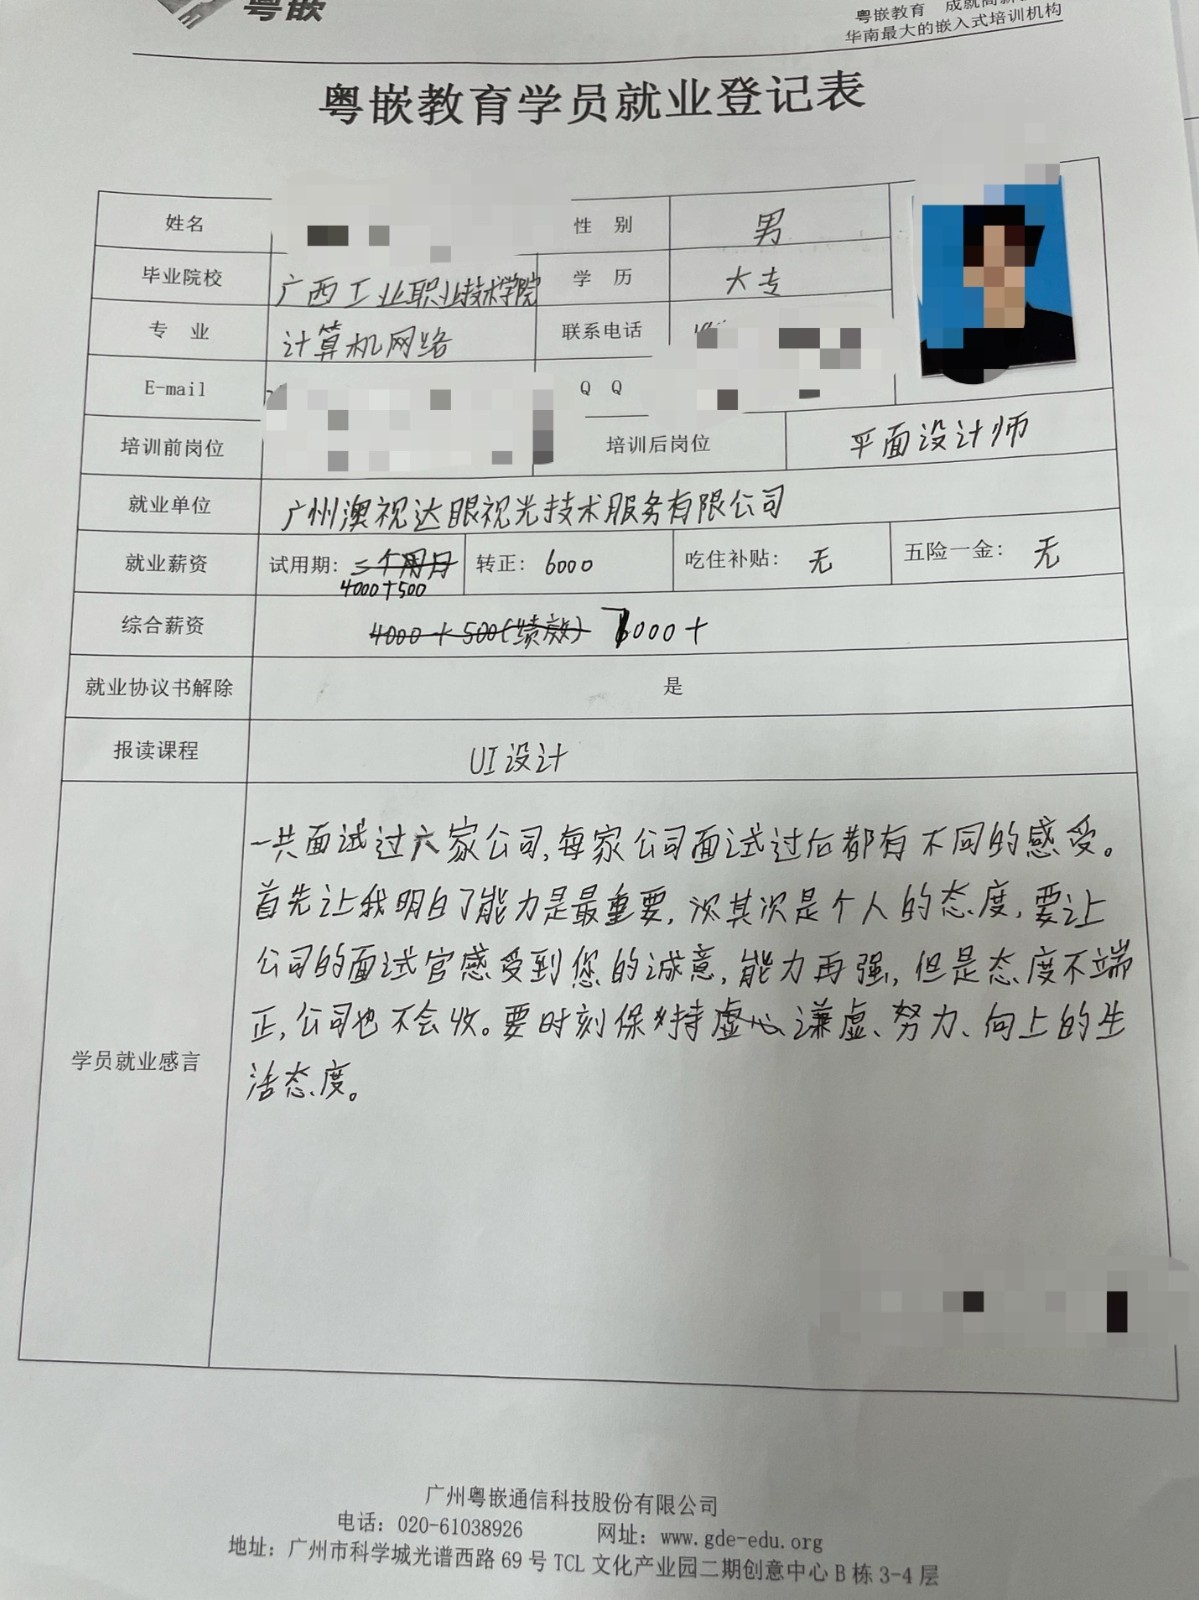 粤嵌
粤嵌教育 成就高薪
华南最大的嵌入式培训机构
粤嵌教育学员就业登记表
姓名 性 别 男
毕业院校 广西工业职业技术学院 学 历 大专
专 业 计算机网络 联系电话
E-mail Q Q
培训前岗位 培训后岗位 平面设计师
就业单位 广州澳视达眼视光技术服务有限公司
就业薪资 试用期: 三个月 转正: 6000 吃住补贴: 无 五险一金: 无
4000+500
综合薪资 4000+500(绩效) 7000+
就业协议书解除 是
报读课程 UI设计
一共面试过六家公司,每家公司面试过后都有不同的感受。
首先让我明白了能力是最重要,次其次是个人的态度,要让
公司的面试官感受到您的诚意,能力再强,但是态度不端
学员就业感言
正,公司也不会收。要时刻保持虚心谦虚、努力、向上的生
活态度。
广州粤嵌通信科技股份有限公司
电话: 020-61038926 网址: www.gde-edu.org
地址: 广州市科学城光谱西路69号TCL文化产业园二期创意中心B栋3-4层